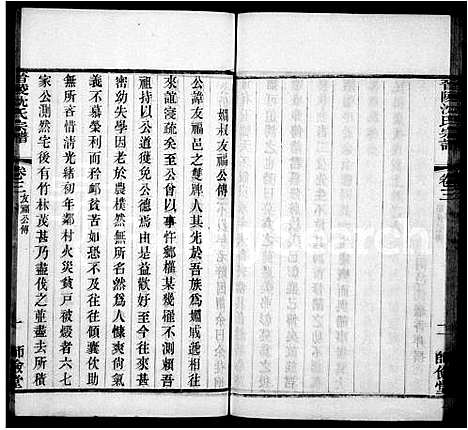 晉陵沈氏宗譜
卷三
二
師儉堂
嫺叔友福公傳
公諱友福邑之畸人其先於吾族為嫺戚遞相往
來誼寖疏矣至公曾以事忤鄉權某幾罹不測
祖持以公道獲免公德焉由是益歡好至公
密幼失學因老於農樸然無所然為人慷爽尚氣
義不慕榮利而矜邺貧苦如恐不及往往傾囊伙助
無所吝惜清光緒初年鄰村火災貧戶被燬者六七
家公測然宅後有竹林茂甚乃盡伐之並盡去所積
晉陵沈氏宗譜
卷三
友福公傳
一
師儉堂